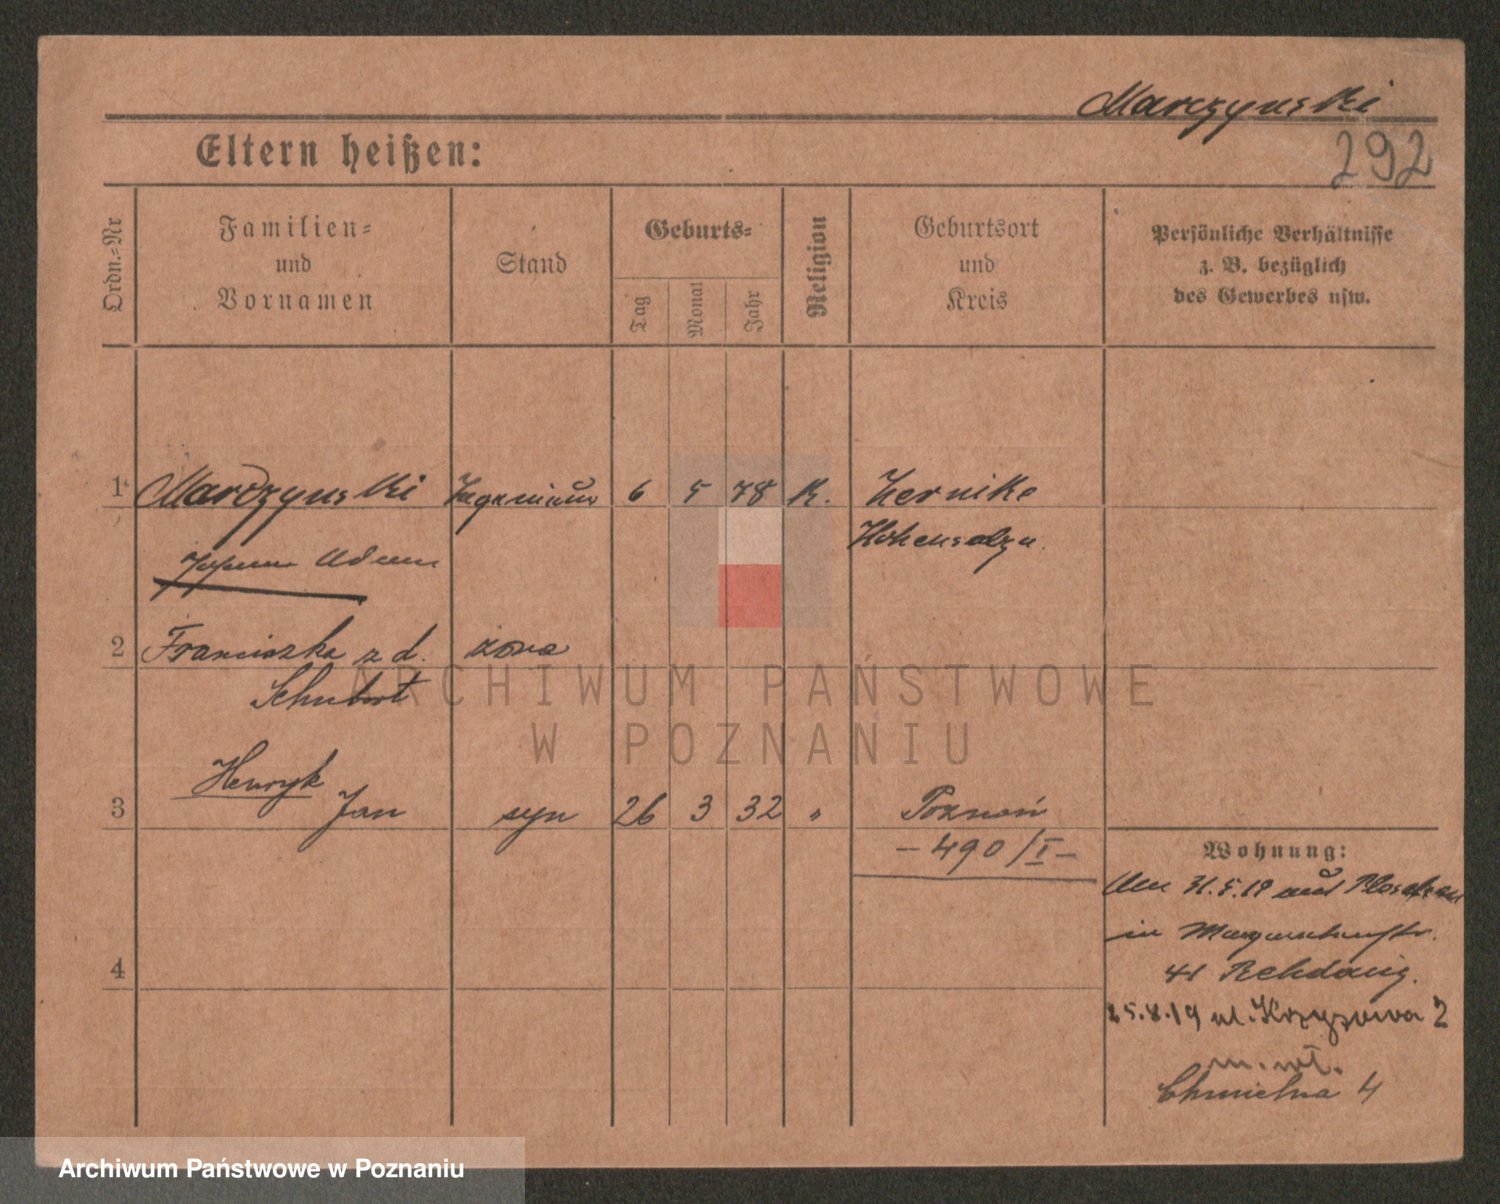 Marczynski
Eltern heißen:
292
Ordn.=Nr
Familien=
und
Vornamen
Stand
Geburts=
Tag
Monat
Jahr
Religion
Geburtsort
und
Kreis
Persönliche Verhältnisse
z. B. bezüglich
des Gewerbes usw.
1 Marczynski Ingenieur 6 5 78 K. Zernike
Hohensalza
Adam
2 Franciszka z d. żona
Schubert
Henryk
3 Jan syn 26 3 32 " Poznań
– 490/I –
Wohnung:
Am 31.5.19 aus Pleschen
in
41
ul. Krzyżowa 2
m. wł.
Chmielna 4
4
ARCHIWUM PAŃSTWOWE
W POZNANIU
Archiwum Państwowe w Poznaniu